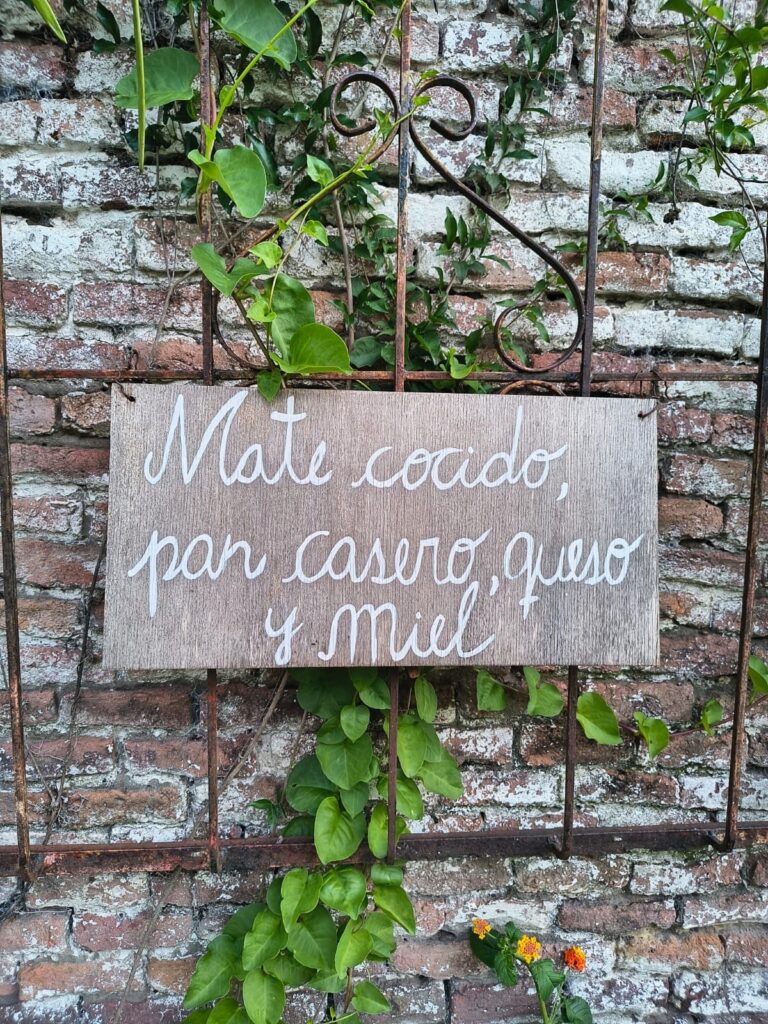 Mate cocido,
pan casero, queso
y miel